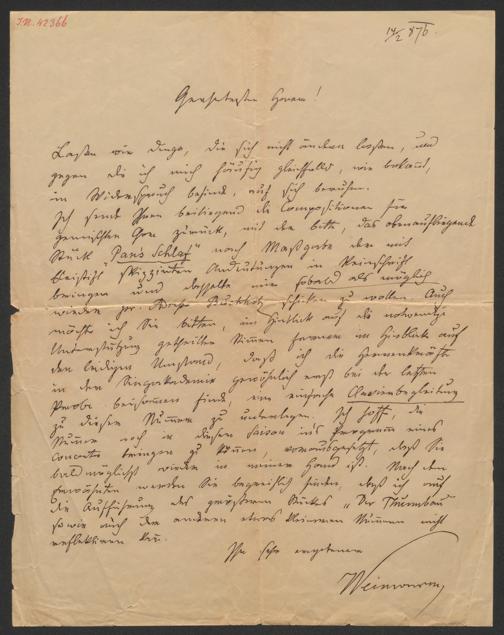 I.N. 42366
14/2 876.
Geehrtester Herr!
Lassen wir Dinge, die sich nicht ändern lassen, und
gegen die ich mich häufig gleichfalls, wie bekannt,
im Widerspruch befinde, auf sich beruhen.
Ich sende Ihnen beiliegend die Compositionen für
gemischten Chor zurück, mit der Bitte, das obenaufliegende
Stück "Pan's Schlaf" nach Maßgabe der mit
Bleistift skizzirten Andeutungen in Reinschrift
bringen und dasselbe mir sobald als möglich
wieder schicken zu wollen. Auch
möchte ich Sie bitten, im Hinblick auf die nothwendige
Unterstützung getheilter Stimmen ferner im Hinblick auf
den leidigen Umstand, daß ich die Herrenkräfte
in der Singakademie gewöhnlich erst bei der letzten
Probe beisammen finde, eine einfache Clavierbegleitung
zu dieser Nummer zu unterlegen. Ich hoffe, die
Nummer noch in dieser Saison ins Programm eines
Concertes bringen zu können, vorausgesetzt, daß Sie
baldmöglichst wieder in meiner Hand ist. Nach dem
werden Sie begreiflich finden, daß ich auf
die Aufführung des größeren Stückes "Der Thurmbau"
sowie auch der anderen etwas kleineren Nummern nicht
reflektiren kann.
Ihr sehr ergebener
Weinwurm